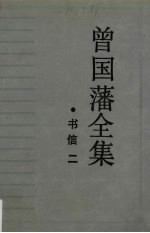 曾国藩全集
·书信二